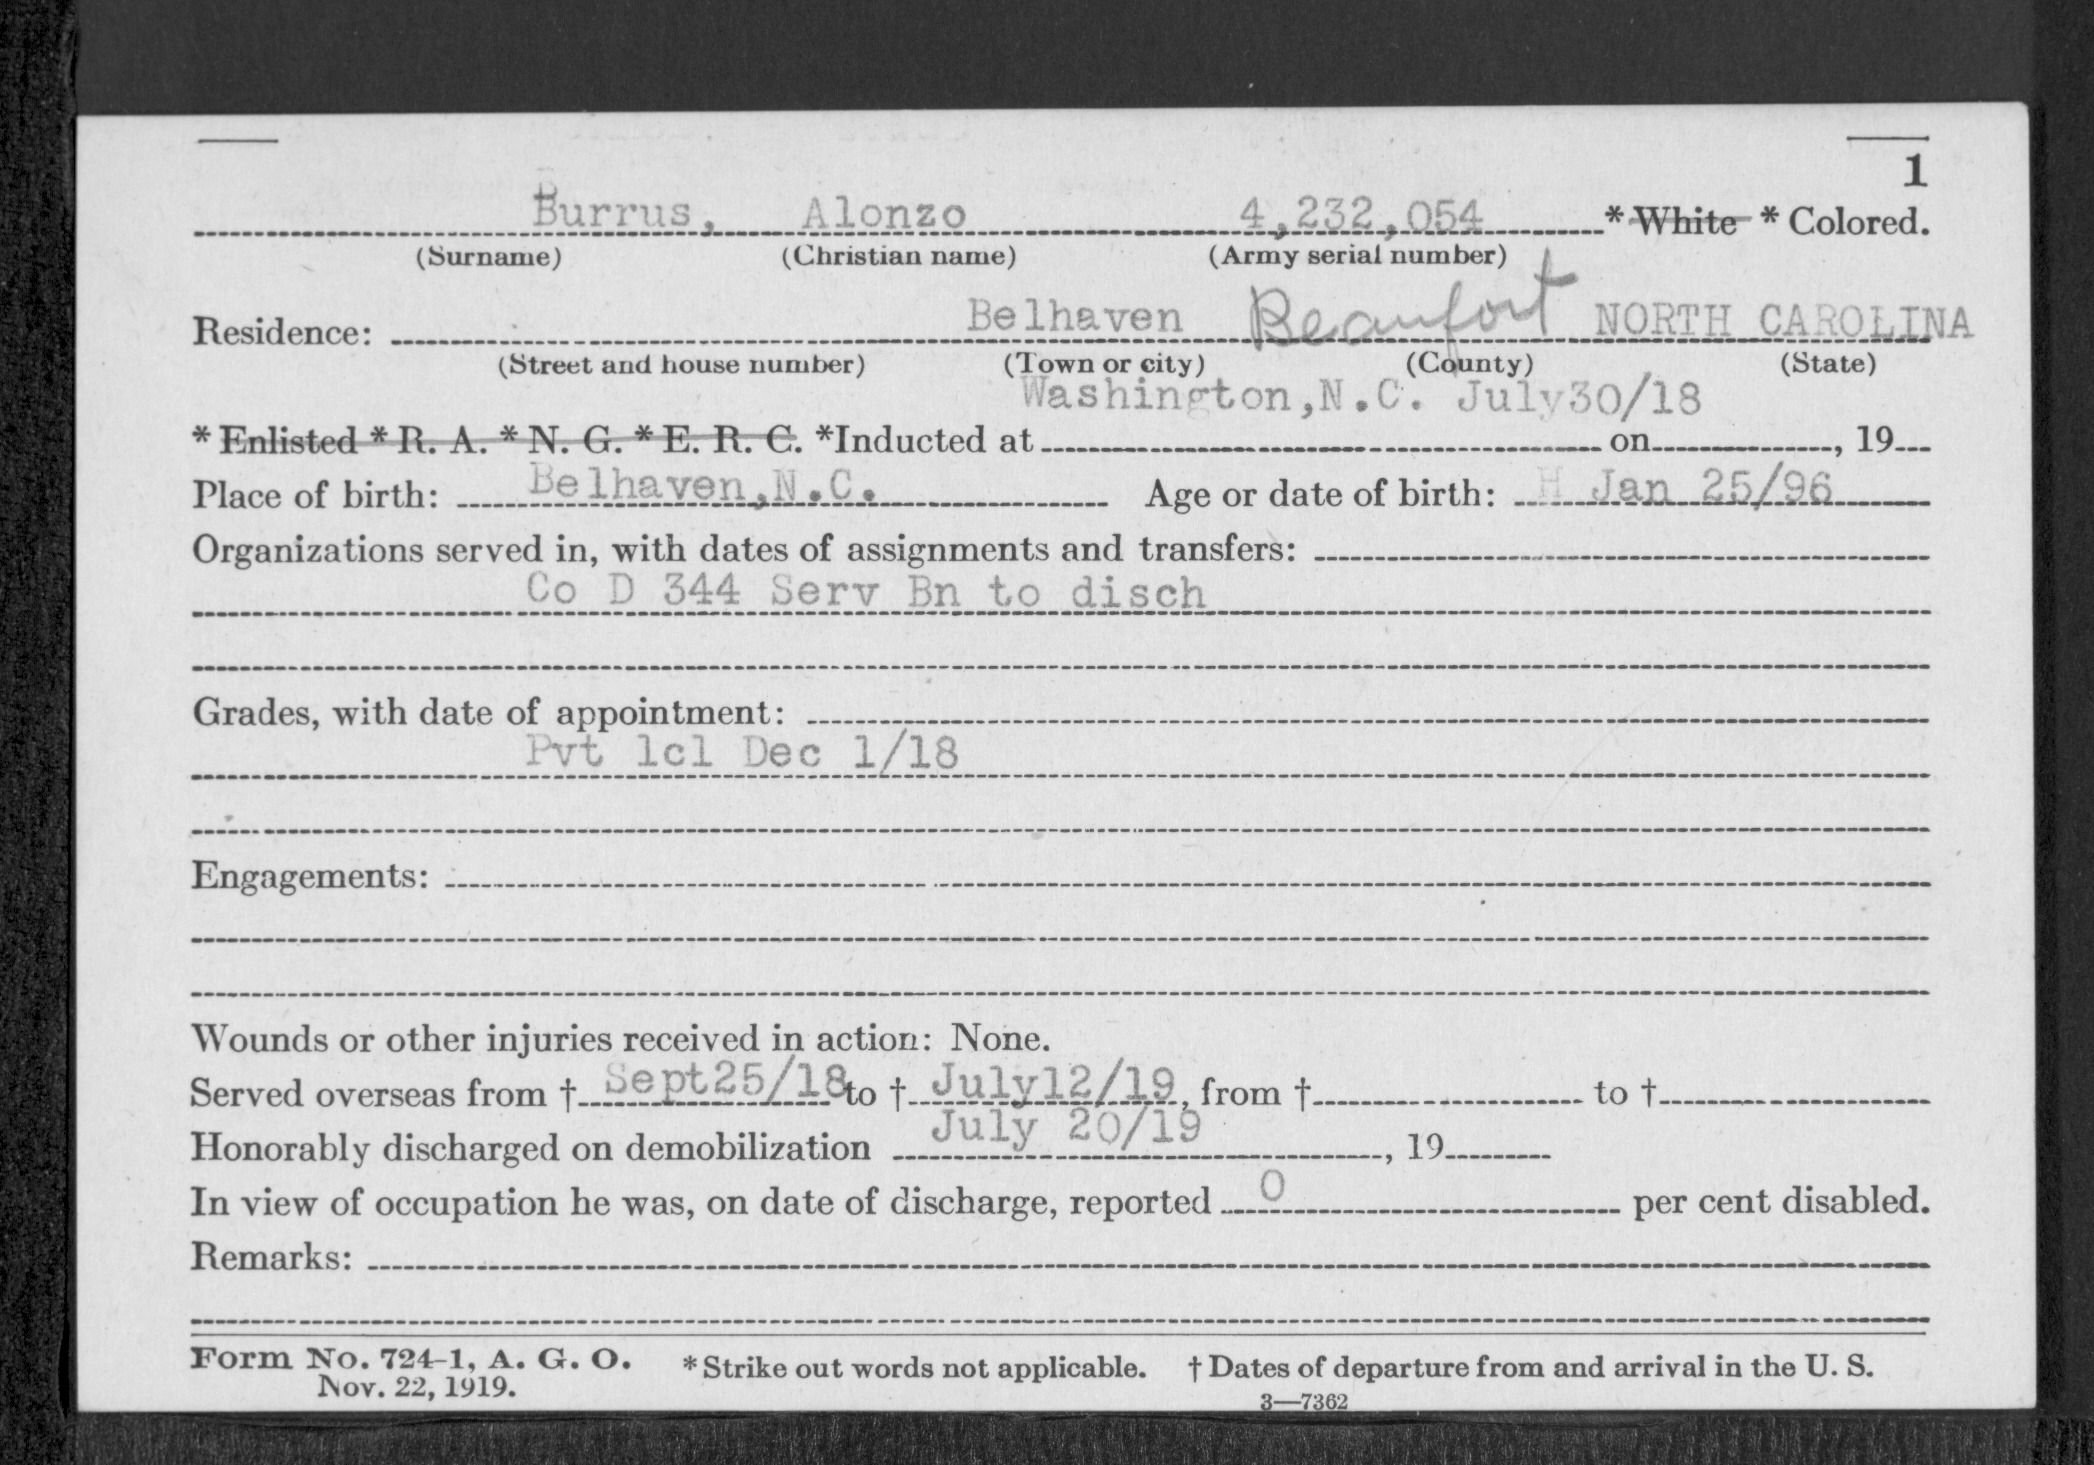 1
Burrus, Alonzo 4,232,054 * White * Colored.
(Surname) (Christian name) (Army serial number)
Residence: Belhaven Beaufort NORTH CAROLINA
(Street and house number) (Town or city) (County) (State)
Washington,N.C. July30/18
* Enlisted * R. A. * N. G. * E. R. C. *Inducted at on , 19
Place of birth: Belhaven,N.C. Age or date of birth: H Jan 25/96
Organizations served in, with dates of assignments and transfers:
Co D 344 Serv Bn to disch
Grades, with date of appointment:
Pvt 1cl Dec 1/18
Engagements:
Wounds or other injuries received in action: None.
Served overseas from † Sept25/18 to † July12/19, from † to †
July 20/19
Honorably discharged on demobilization , 19
In view of occupation he was, on date of discharge, reported 0 per cent disabled.
Remarks:
Form No. 724-1, A. G. O. * Strike out words not applicable. † Dates of departure from and arrival in the U. S.
Nov. 22, 1919.
3—7362